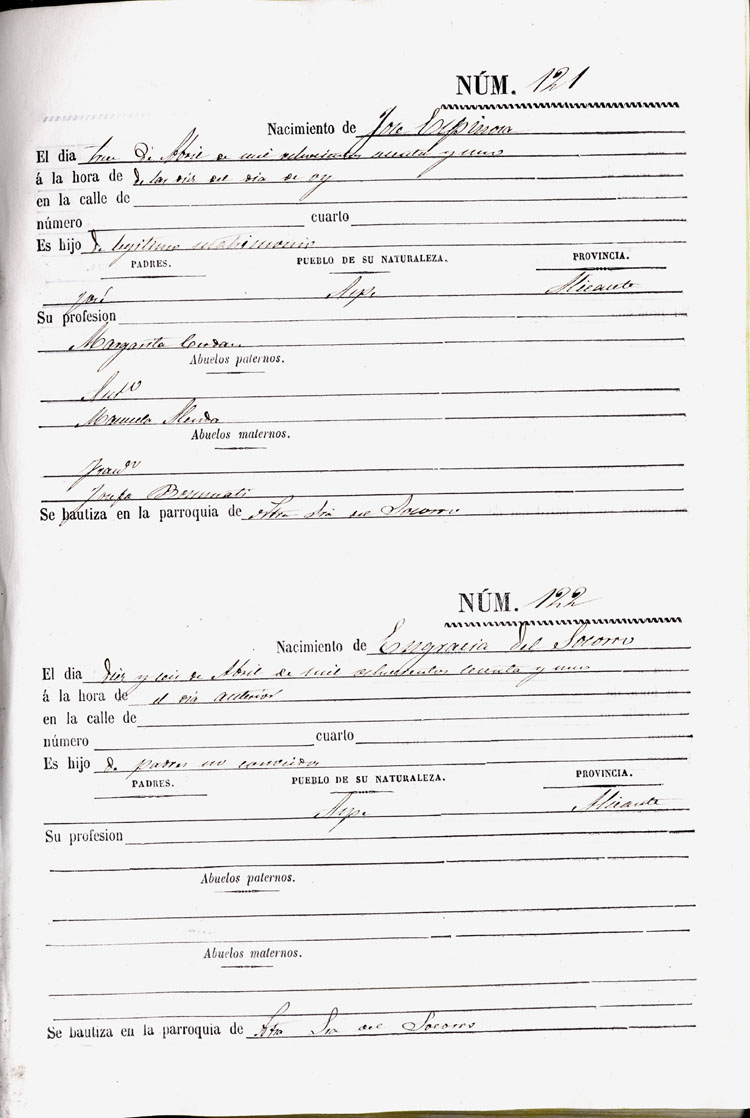 NÚM. 121
Nacimiento de Jose Espinosa
El dia trece de Abril de mil ochocientos cuarenta y uno
á la hora de de las diez del dia de oy
en la calle de
número cuarto
Es hijo de legitimo matrimonio
PADRES. PUEBLO DE SU NATURALEZA. PROVINCIA.
José Aspe Alicante
Su profesion
Margarita Cerdan
Abuelos paternos.
Antº
Manuela Alenda
Abuelos maternos.
Franº
Josefa
Se bautiza en la parroquia de Ntra Sra del Socorro
NÚM. 122
Nacimiento de Engracia del Socorro
El dia diez y seis de Abril de mil ochocientos cuarenta y uno
á la hora de el dia anterior
en la calle de
número cuarto
Es hijo de padres no conocidos
PADRES. PUEBLO DE SU NATURALEZA. PROVINCIA.
Aspe Alicante
Su profesion
Abuelos paternos.
Abuelos maternos.
Se bautiza en la parroquia de Ntra Sra del Socorro